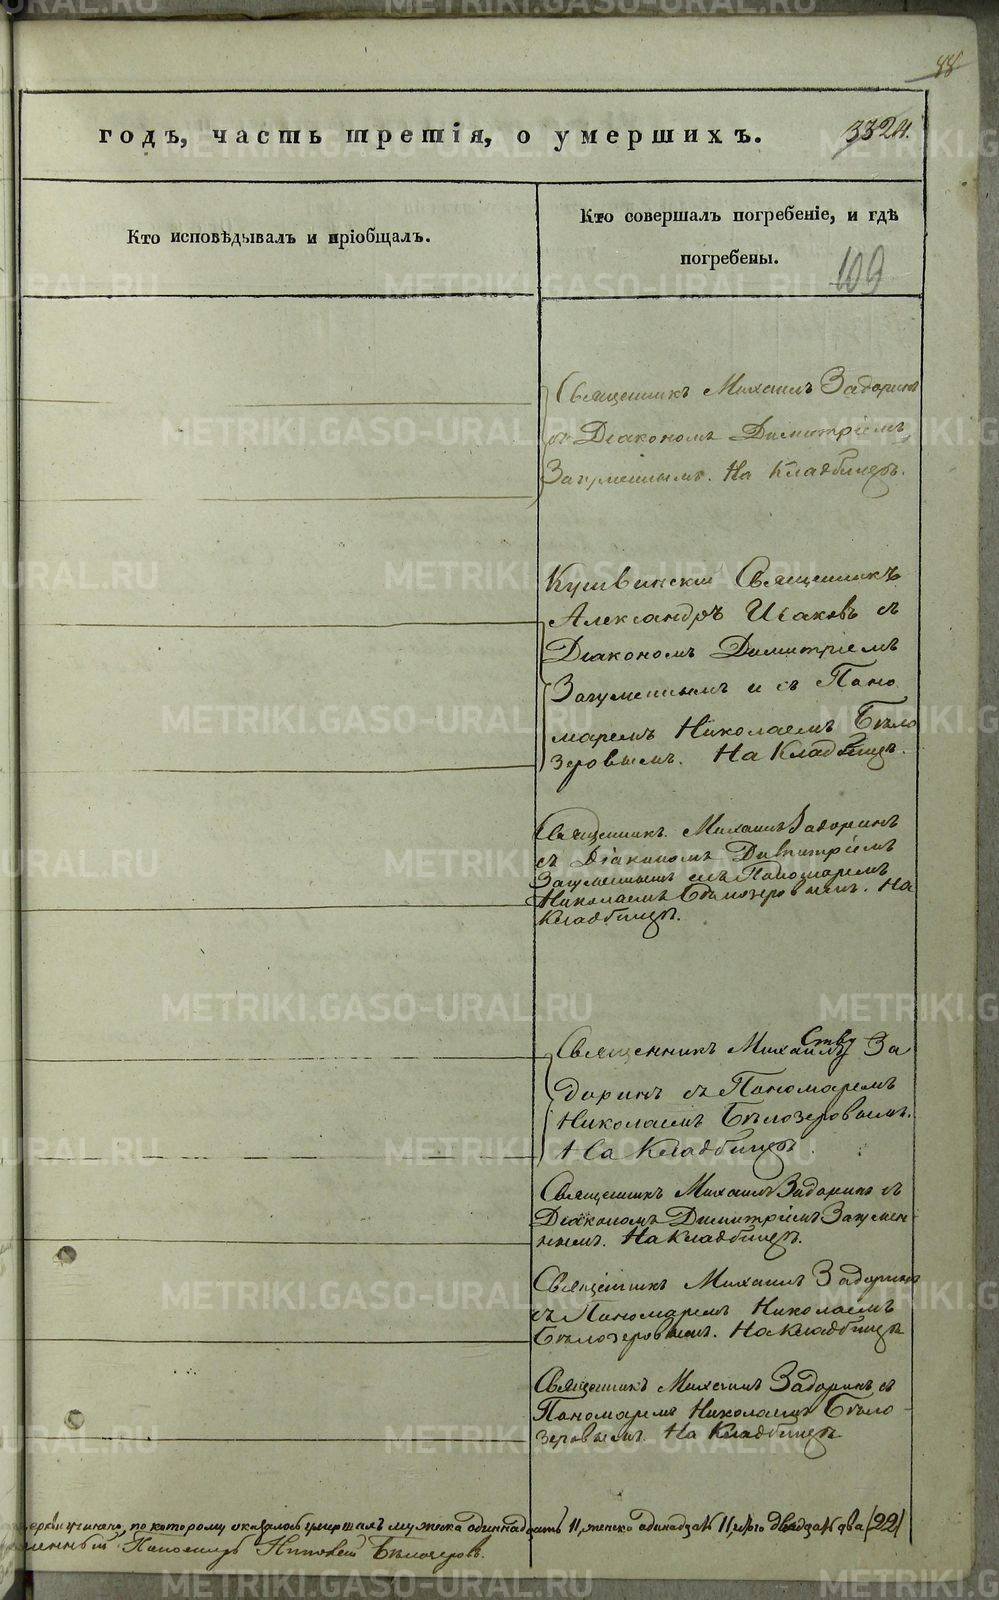 88
годъ, часть третія, о умершихъ.
332 ч.
Кто исповѣдывалъ и пріобщалъ.
Кто совершалъ погребеніе, и гдѣ
погребены.
109
Священникъ Михаилъ Задоринъ
съ Діакономъ Димитріемъ
Загуменнымъ. На Кладбищѣ.
Кушвинскій Священникъ
Александръ Исаковъ съ
Діакономъ Димитріемъ
Загуменнымъ и съ Поно
маремъ Николаемъ Бѣло
зеровымъ. На Кладбищѣ.
Священникъ Михаилъ Задоринъ
съ Діакономъ Димитріемъ
Загуменнымъ и съ Пономаремъ
Николаемъ Бѣлозеровымъ. На
Кладбищѣ.
Священникъ Михаилъ За
доринъ съ Пономаремъ
Николаемъ Бѣлозеровымъ.
На Кладбищѣ.
Священникъ Михаилъ Задоринъ съ
Діакономъ Димитріемъ Загумен-
нымъ. На Кладбищѣ.
Священникъ Михаилъ Задоринъ
съ Пономаремъ Николаемъ
Бѣлозеровымъ. На Кладбищѣ
Священникъ Михаилъ Задоринъ съ
Пономаремъ Николаемъ Бѣло-
зеровымъ. На Кладбищѣ.
учинено, по которому оказалось умершихъ мужеска одиннадцать 11, женско одинадзать 11, всего двадзать два (22)
Пономарь Николай Бѣлозеровъ.
METRIKI.GASO-URAL.RU